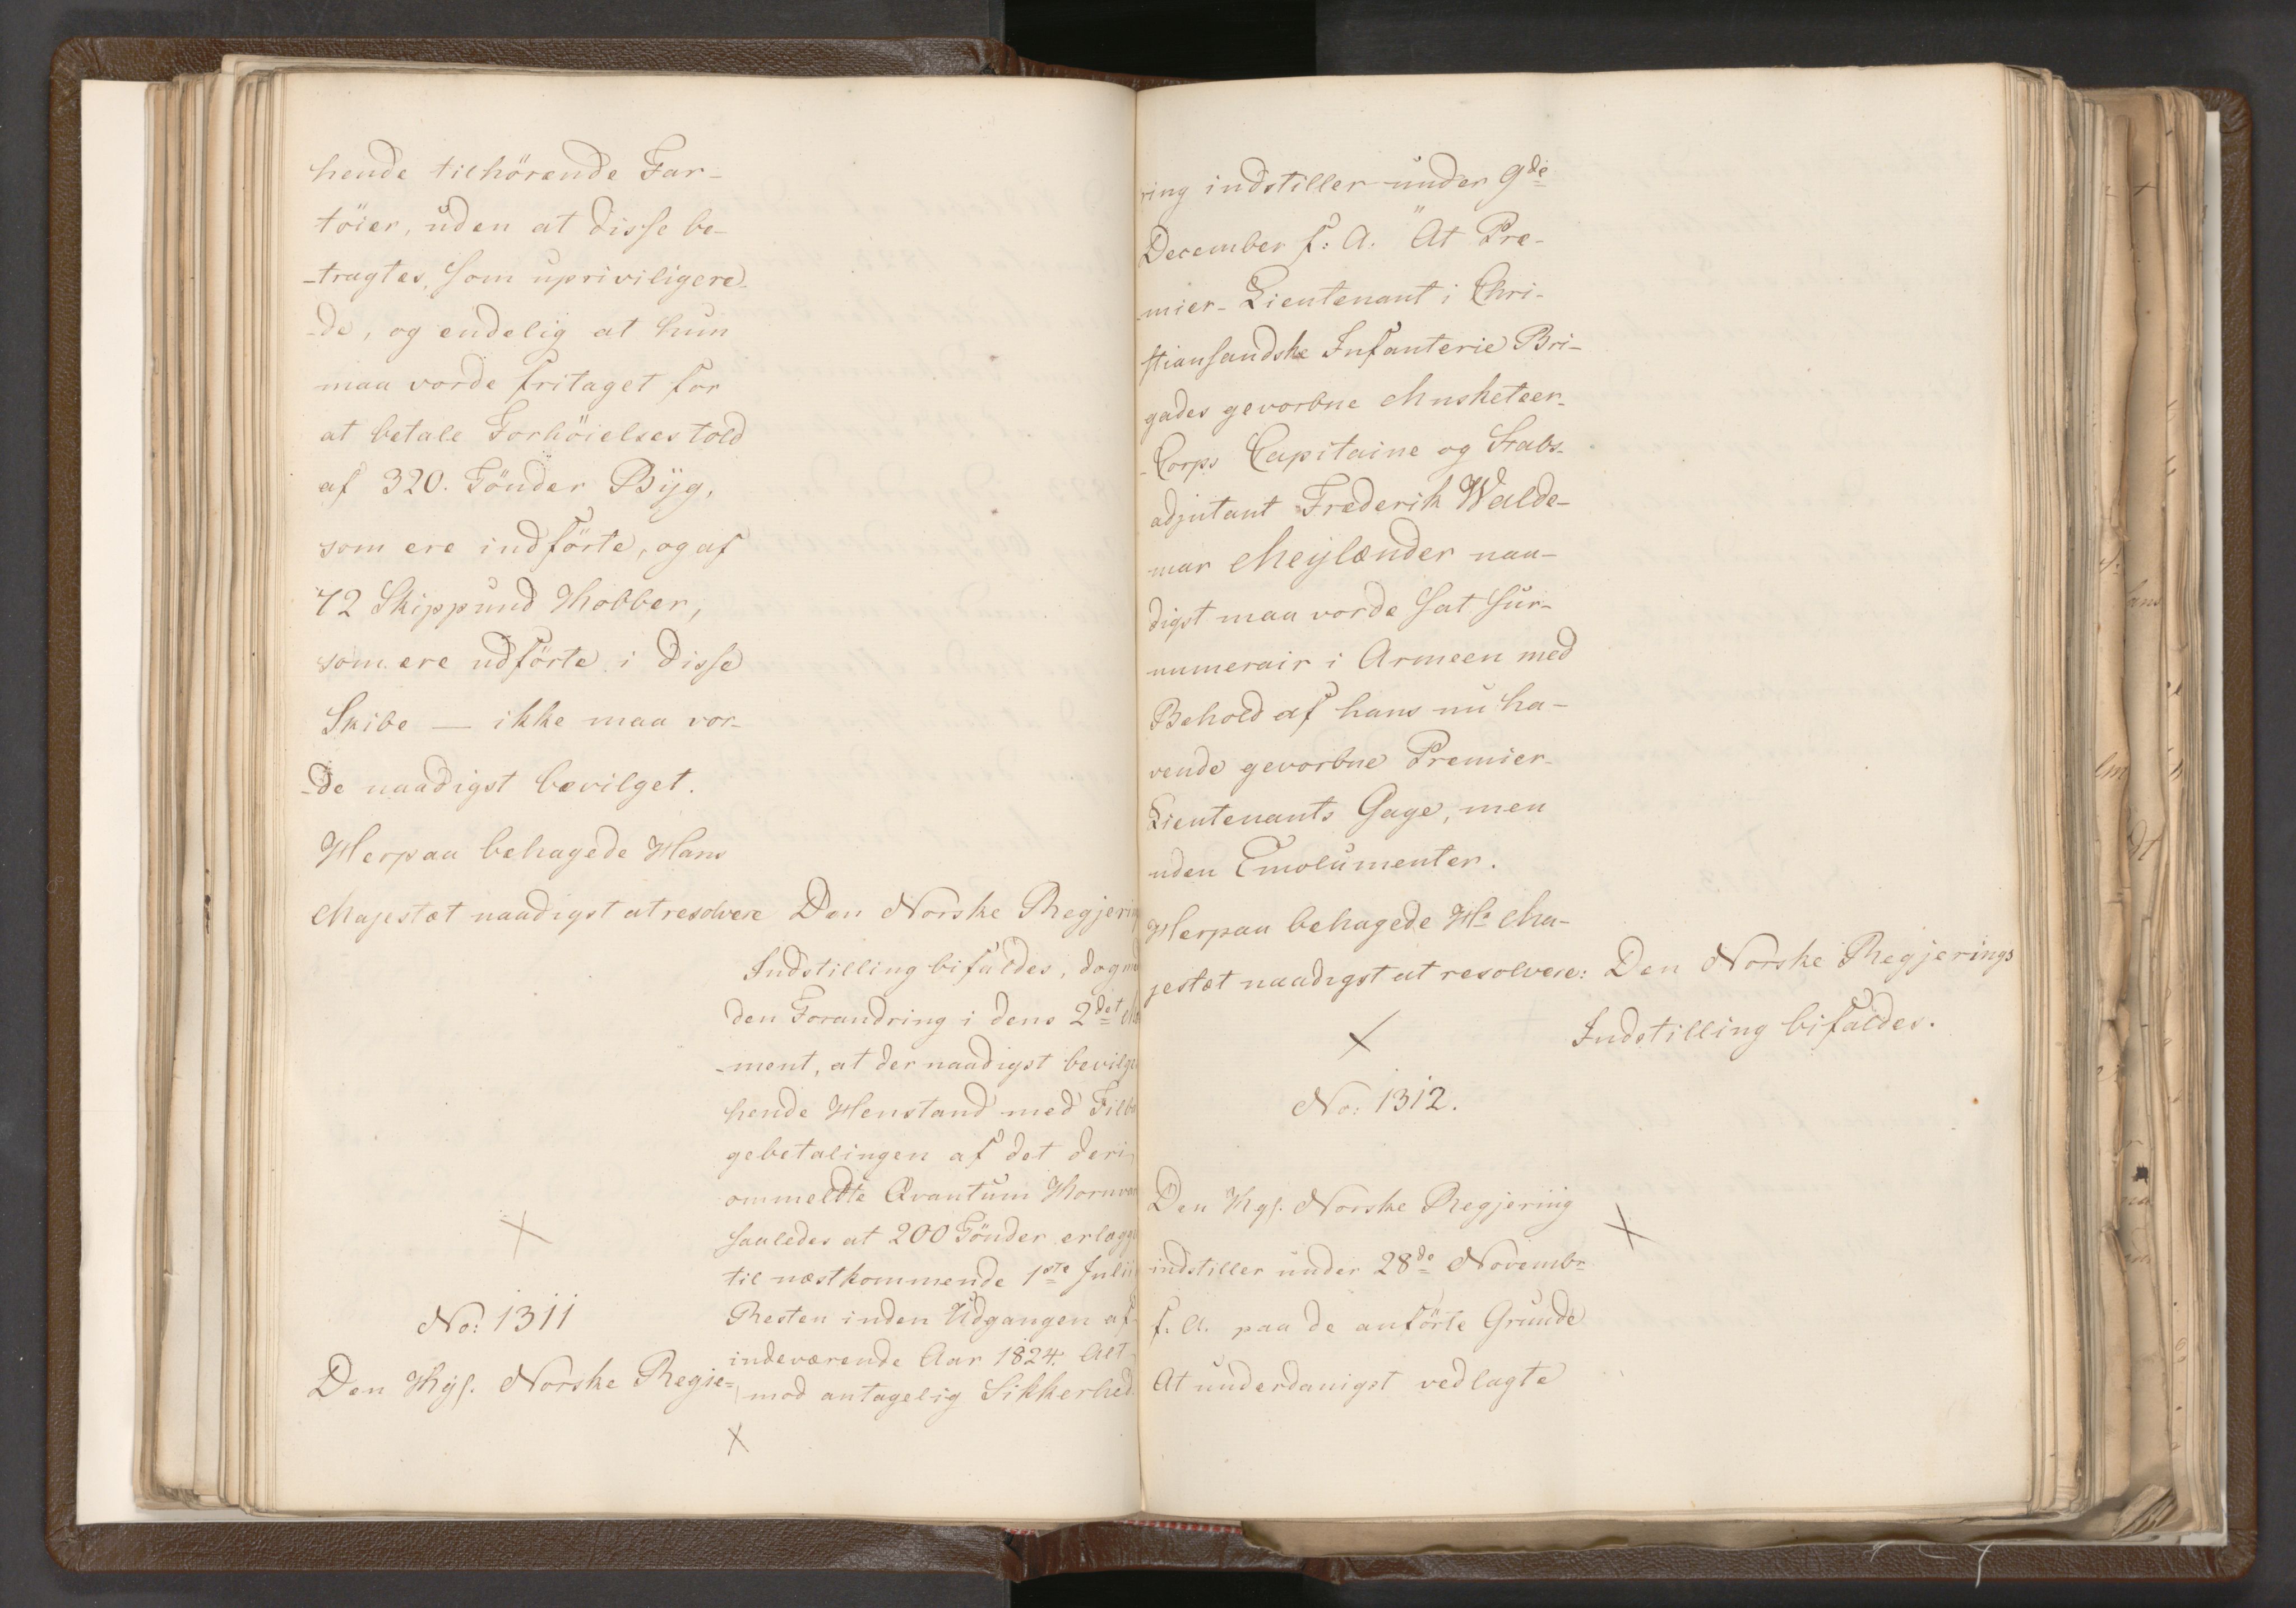 hende tilhörende Far-
töier, uden at disse be-
-tragtes, som upriviligere-
-de, og endelig at hun
maa vorde fritaget for
at betale Forhöielsestold
af 320. Tönder Byg,
som ere indförte, og af
72 Skippund Kobber,
som ere udförte i disse
Skibe — ikke maa vor-
-de naadigst bevilget.
Herpaa behagede Hans
Majestæt naadigst at resolvere
Den Norske Regjering
Indstilling bifaldes, dog
den Forandring i dens 2det
-ment, at der naadigst bevilg
hende Henstand med Tilb
gebetalingen af det deri
ommeldte Qvantum Kornva
saaledes at 200 Tönder erlægg
til næstkommende 1ste Julii
Resten inden Udgangen af
indeværende Aar 1824. Alt
mod antagelig Sikkerhed
No: 1311
Den Kgl. Norske Regje-
ring indstiller under 9de
December f: A. "At Pre-
mier-Lieutenant i Chri-
stiansandske Infanterie Bri-
gades gevorbne Musketeer-
-Corps Capitaine og Stabs-
adjutant Frederik Walde-
mar Meylænder naa-
digst maa vorde sat sur-
numerair i Armeen med
Behold af hans nu ha-
vende gevorbne Premier-
Lieutenants Gage, men
uden Emolumenter.
Herpaa behagede Hs Ma-
jestæt naadigst at resolvere:
Den Norske Regjerings
Indstilling bifaldes.
No: 1312.
Den Kgl. Norske Regjering
indstiller under 28de Novembr
f. A. paa de anförte Grunde
At underdanigst vedlagte